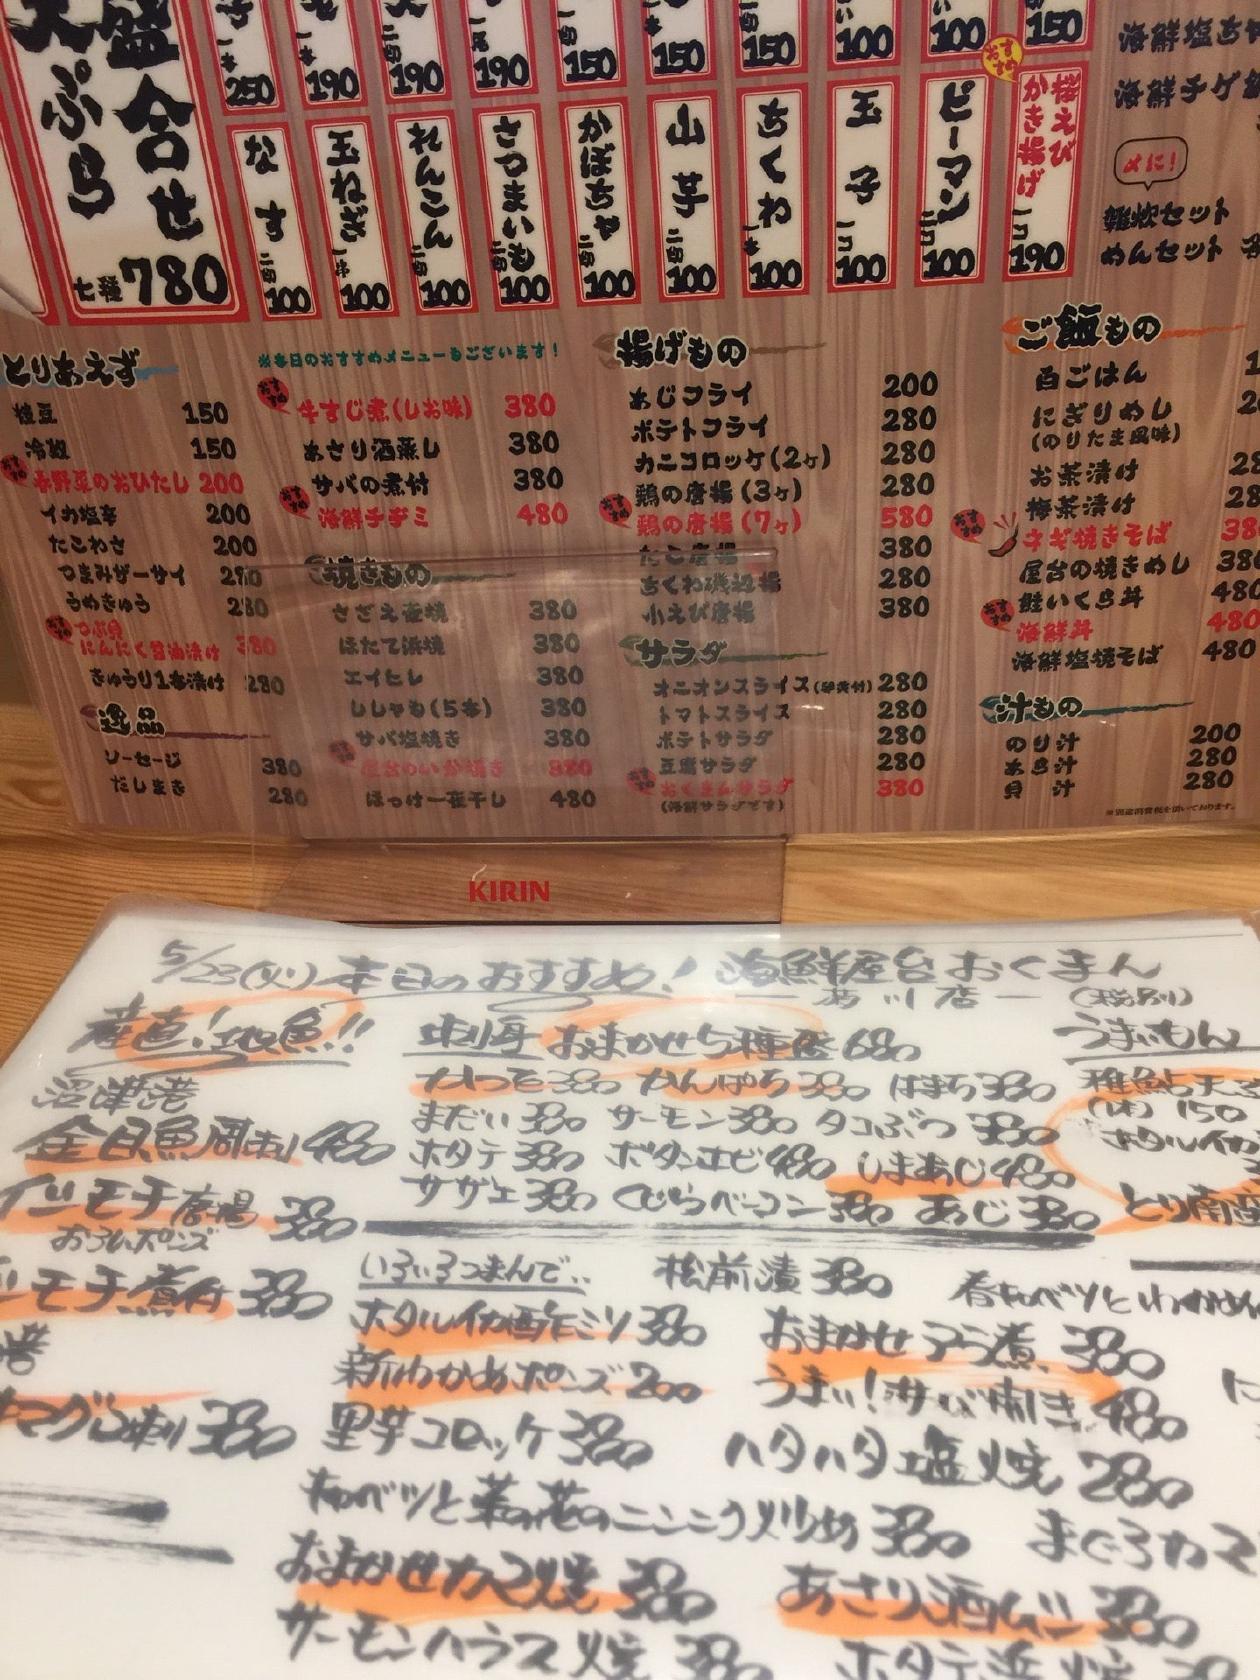 盛合せ
天ぷら
七種780
一本250
190
二切190
190
二切150
150
150
100
100
150
なす 二切100
玉ねぎ 一串100
れんこん 二切100
さつまいも 二切100
かぼちゃ 二切100
山芋 二切100
ちくわ 一本100
玉子 一コ100
ピーマン 二コ100
おすすめ
桜えびかき揚げ 一コ190
海鮮塩ち
海鮮チゲ
〆に!
雑炊セット
めんセット
とりあえず
枝豆 150
冷奴 150
おすすめ 春野菜のおひたし 200
イカ塩辛 200
たこわさ 200
つまみザーサイ 280
うめきゅう 280
おすすめ つぶ貝
にんにく醤油漬け 380
きゅうり1本漬け 280
逸品
ソーセージ 380
だしまき 280
※毎日のおすすめメニューもございます!
おすすめ 牛すじ煮(しお味) 380
あさり酒蒸し 380
サバの煮付 380
おすすめ 海鮮チヂミ 480
焼きもの
さざえ壺焼 380
ほたて浜焼 380
エイヒレ 380
ししゃも(5本) 380
サバ塩焼き 380
おすすめ 屋台のいか焼き 380
ほっけ一夜干し 480
揚げもの
あじフライ 200
ポテトフライ 280
カニコロッケ(2ヶ) 280
鶏の唐揚(3ヶ) 280
おすすめ 鶏の唐揚(7ヶ) 580
たこ唐揚 380
ちくわ磯辺揚 280
小えび唐揚 380
サラダ
オニオンスライス(卵黄付) 280
トマトスライス 280
ポテトサラダ 280
豆腐サラダ 280
おすすめ おくまんサラダ 380
(海鮮サラダです)
ご飯もの
白ごはん 1
にぎりめし 2
(のりたま風味)
お茶漬け 28
梅茶漬け 28
おすすめ ネギ焼きそば 38
屋台の焼きめし 380
鮭いくら丼 480
おすすめ 海鮮丼 480
海鮮塩焼そば 480
汁もの
のり汁 200
あら汁 280
貝汁 280
※別途消費税を頂いております。
KIRIN
5/23(火) 本日のおすすめ! 海鮮屋台おくまん
(税別)
産直!地魚!!
沼津港
金目魚周刺 480
イシモチ唐揚 380
おろしポンズ
シモチ煮付 380
港
マグロ刺 380
刺身 おまかせ5種盛 680
かつを380 かんぱち380 はまち380
まだい380 サーモン380 タコぶつ380
ホタテ380 ボタンエビ480 しまあじ480
サザエ380 くじらベーコン380 あじ380
うまいもん
稚鮎天
(1本) 150
ホタルイカ
とり南蛮
いろいろつまんで..
ホタルイカ酢ミソ380
新わかめポンズ200
里芋コロッケ380
キャベツと菜の花のニンニク炒め380
おまかせカマ焼380
サーモンハラス焼380
松前漬380
おまかせアラ煮380
うまい!サバ開き480
ハタハタ塩焼280
あさり酒ムシ380
ホタテ浜焼
春キャベツとわかめ
まぐろカマ